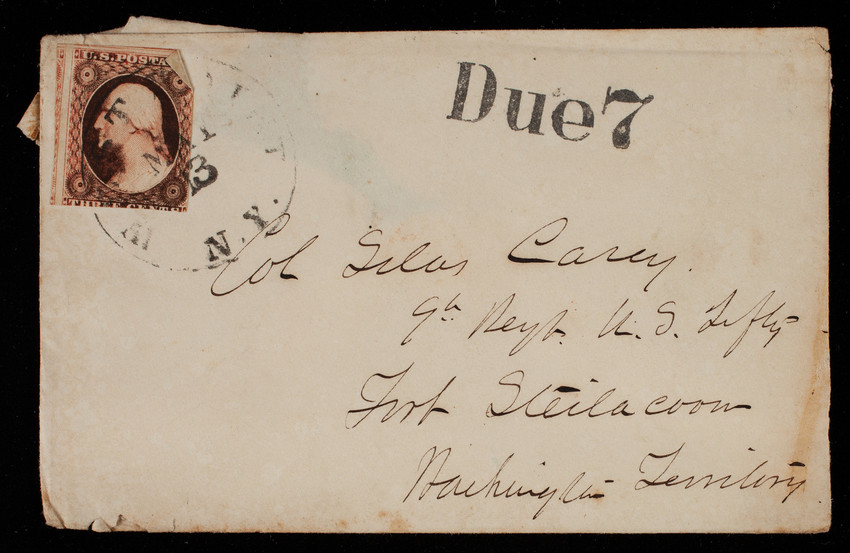 U.S. POSTA
THREE CENTS
MAY
3
N.Y.
Due 7
Col Silas Casey.
9th Regt. U. S. Infty
Fort Steilacoom
Washington Territory